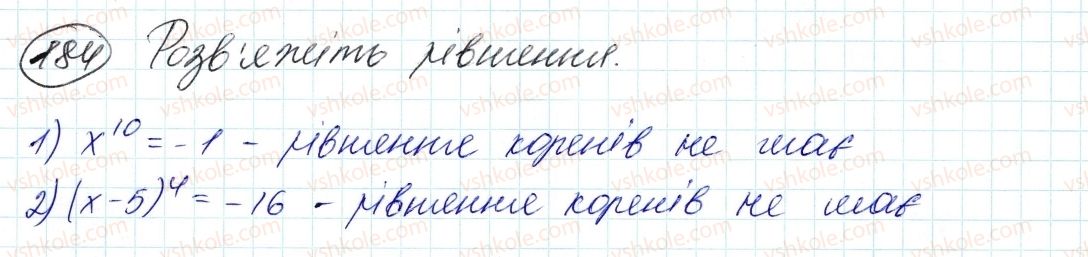 184 Розв'яжіть рівняння.
1) x^10 = -1 - рівняння коренів не має
2) (x-5)^4 = -16 - рівняння коренів не має